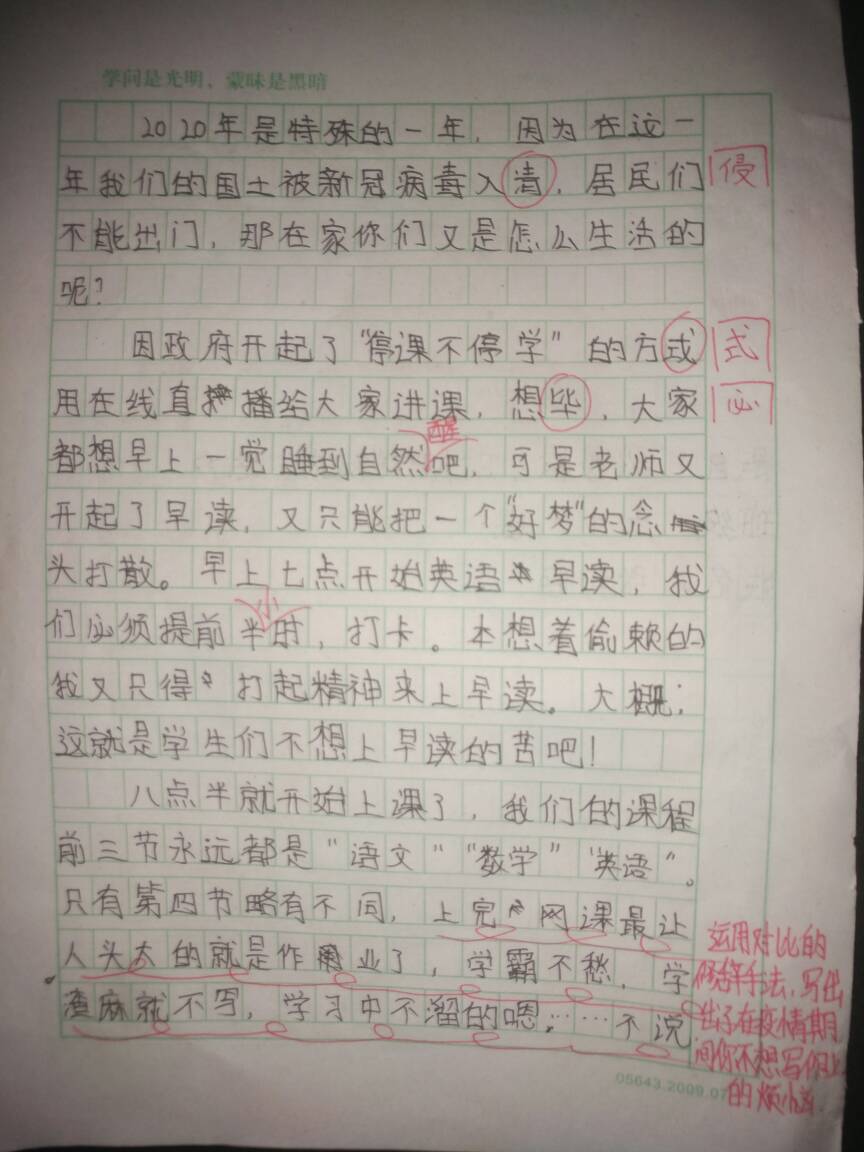 学问是光明，蒙昧是黑暗
2020年是特殊的一年，因为在这一
年我们的国土被新冠病毒入清，居民们
侵
不能出门，那在家你们又是怎么生活的
呢？
因政府开起了“停课不停学”的方式
式
用在线直播给大家讲课，想毕，大家
必
都想早上一觉睡到自然醒吧，可是老师又
开起了早读，又只能把一个“好梦”的念
头打散。早上七点开始英语早读，我
们必须提前半小时，打卡。本想着偷赖的
我又只得打起精神来上早读。大概；
这就是学生们不想上早读的苦吧！
八点半就开始上课了，我们的课程
前三节永远都是“语文”“数学”“英语”。
只有第四节略有不同，上完网课最让
人头大的就是作业了，学霸不愁，学
渣麻就不写，学习中不溜的嗯……不说
运用对比的
修辞手法，写出
出了在疫情期
间你不想写作业
的烦恼。
05643.2009.07